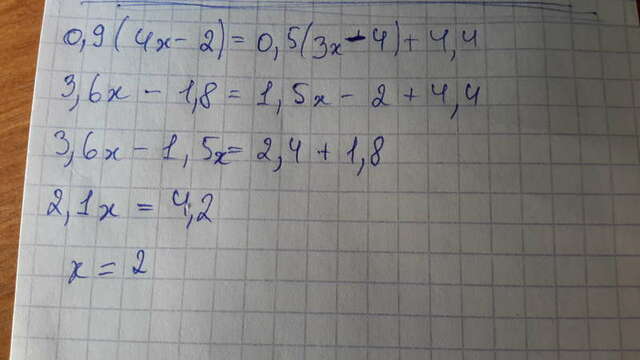 0,9(4x-2)=0,5(3x-4)+4,4
3,6x-1,8=1,5x-2+4,4
3,6x-1,5x=2,4+1,8
2,1x=4,2
x=2